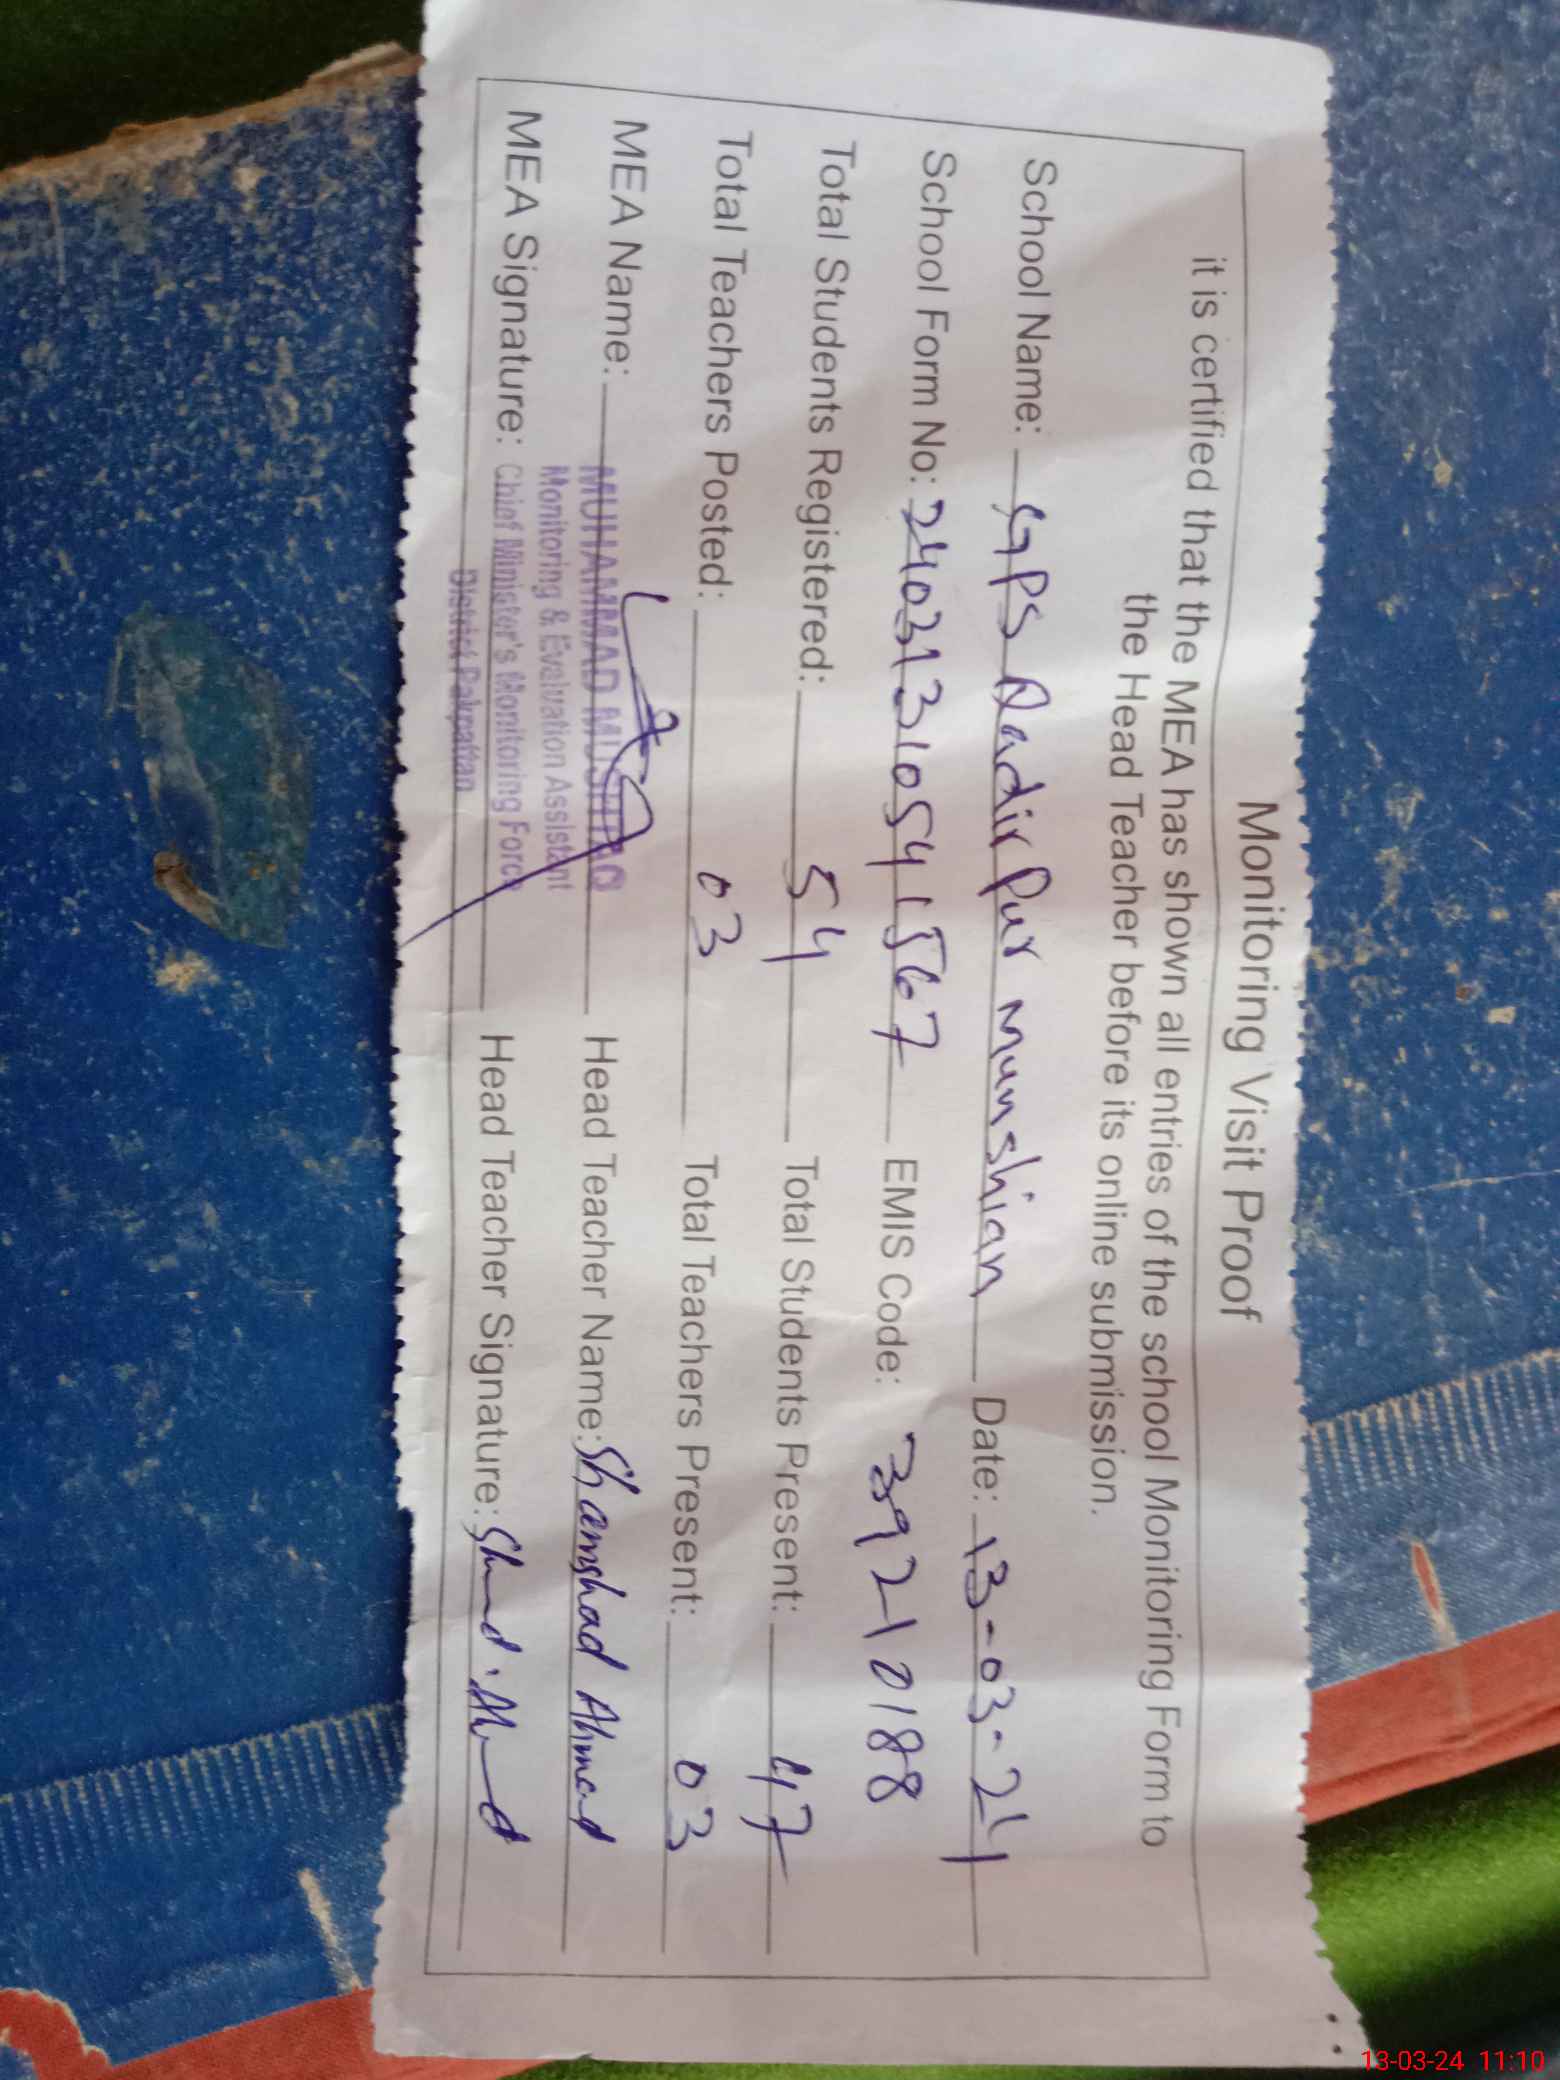 Monitoring Visit Proof
it is certified that the MEA has shown all entries of the school Monitoring Form to
the Head Teacher before its online submission.
School Name: GPS Qadir Pur Munshian Date: 13-03-24
School Form No: 24031310541567 EMIS Code: 39210188
Total Students Registered: 54 Total Students Present: 47
Total Teachers Posted: 03 Total Teachers Present: 03
MEA Name: MUHAMMAD MUSHTAQ Head Teacher Name: Shamshad Ahmad
Monitoring & Evaluation Assistant
MEA Signature: Chief Minister's Monitoring Force Head Teacher Signature:
District Pakpattan
13-03-24 11:10